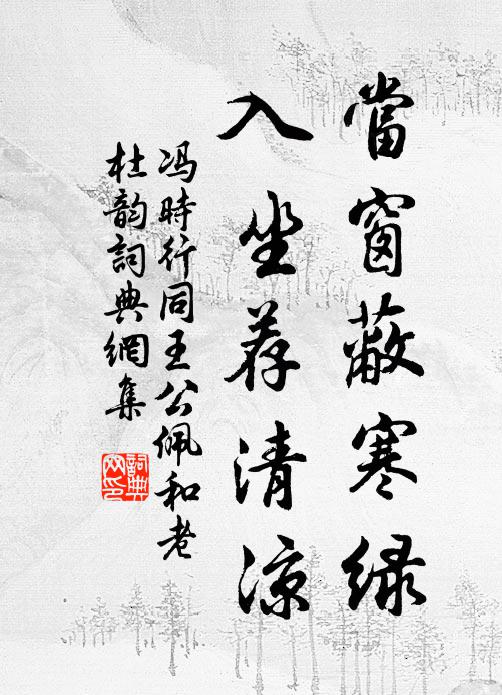 當窗蔽寒绿
入坐荐清凉
冯時行同王公佩和老
杜韵詞典網集
詞典
网印